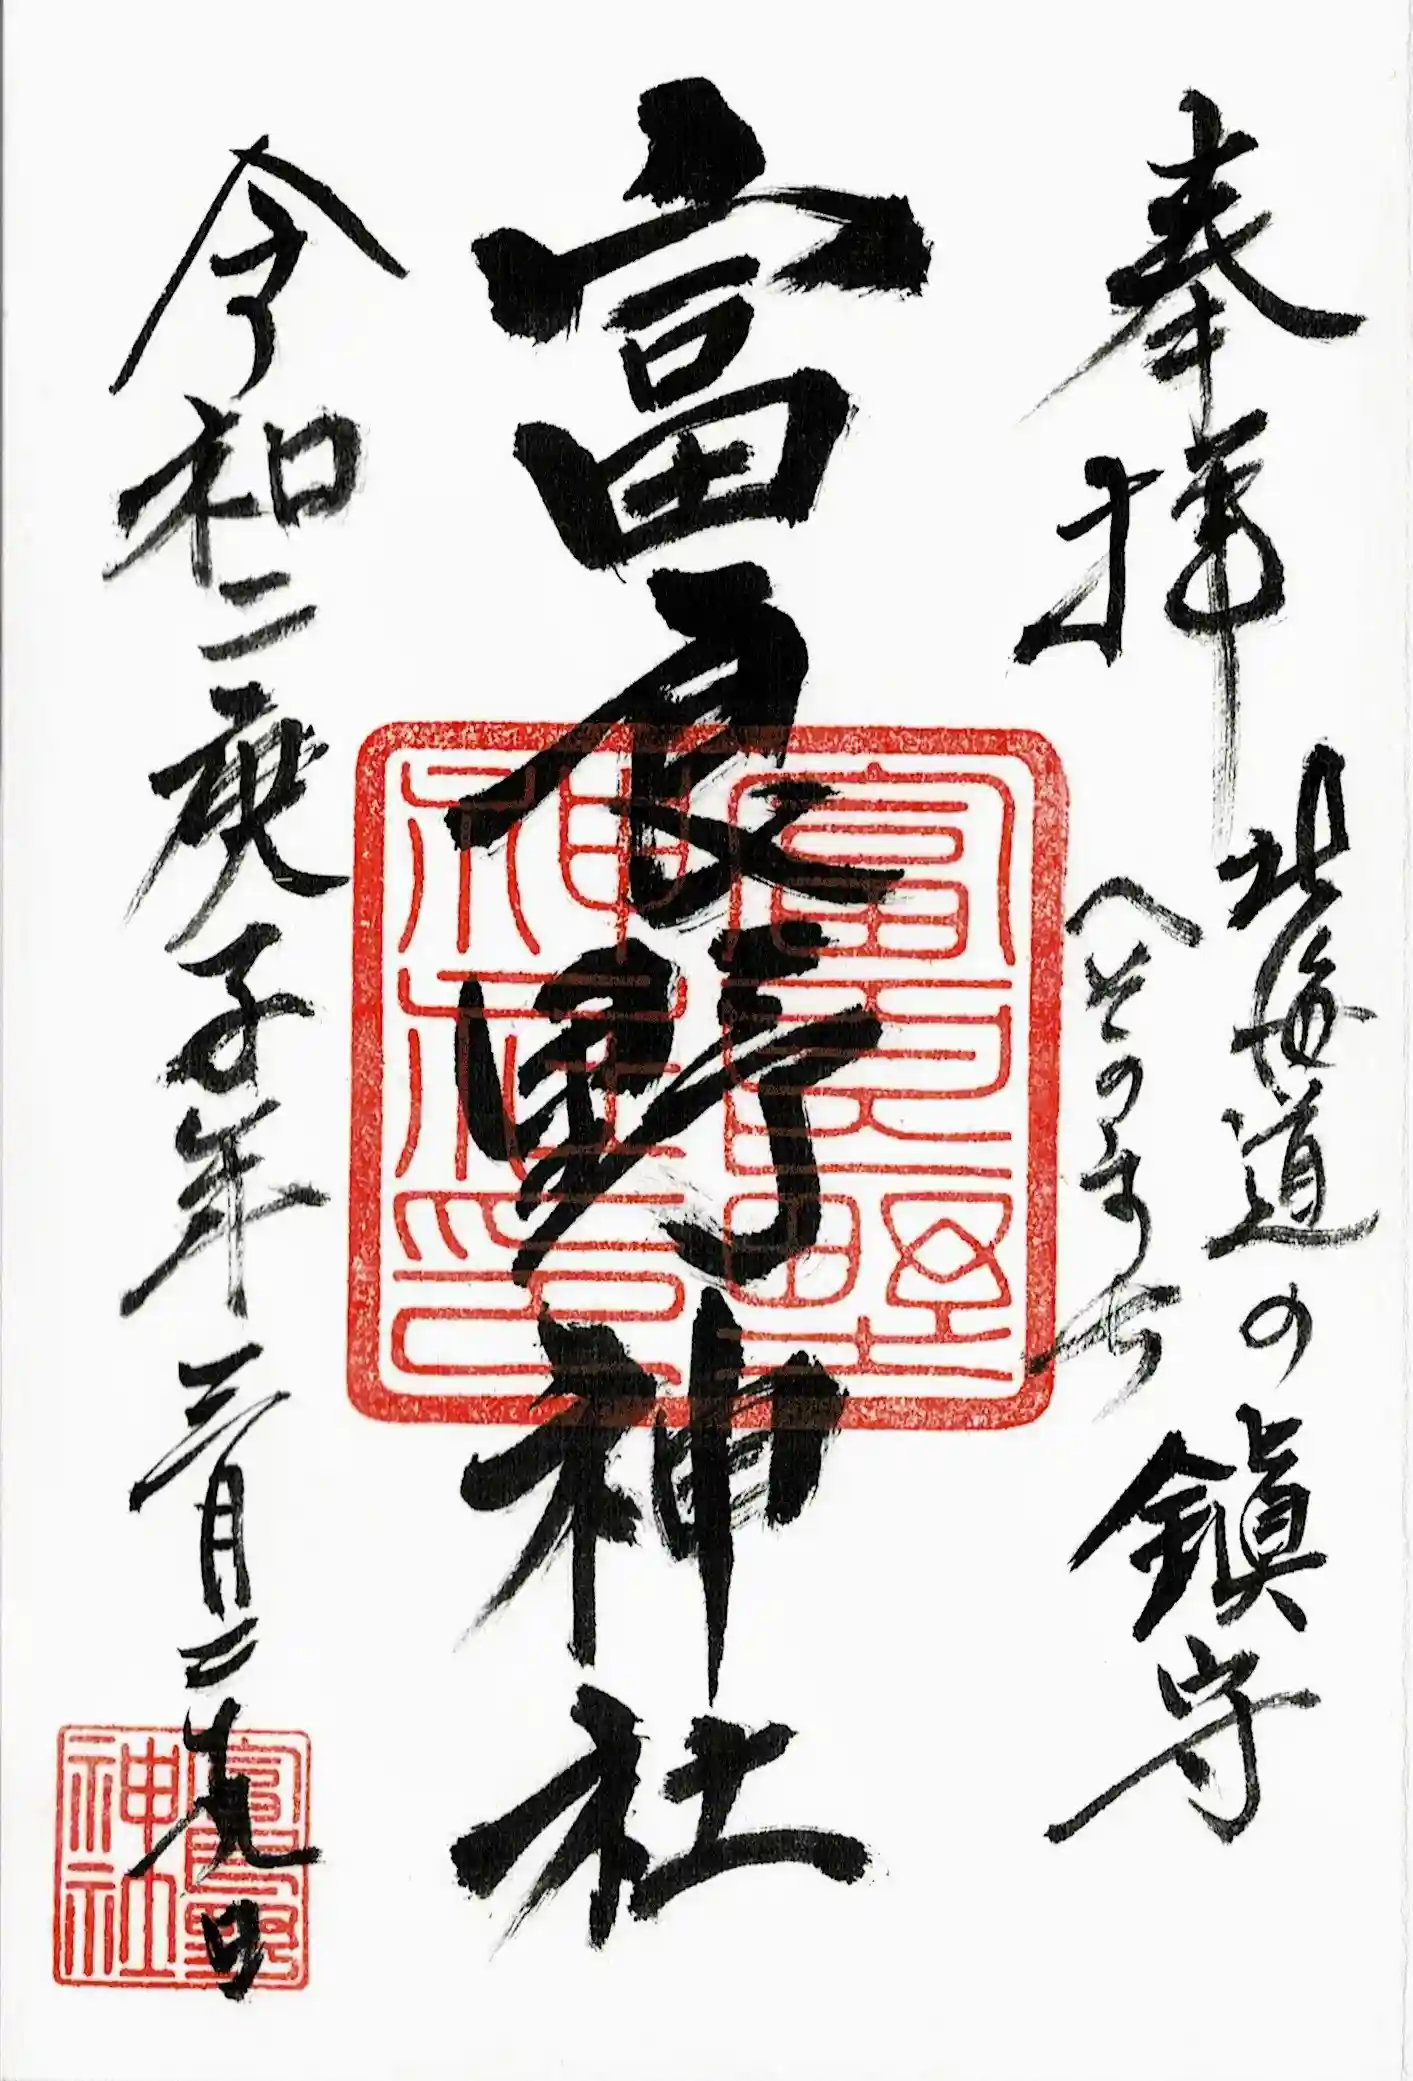 奉拝
北海道の鎮守
へそのまち
富良野神社
令和二庚子年三月二十九日
富良野
神社印
富良野
神社